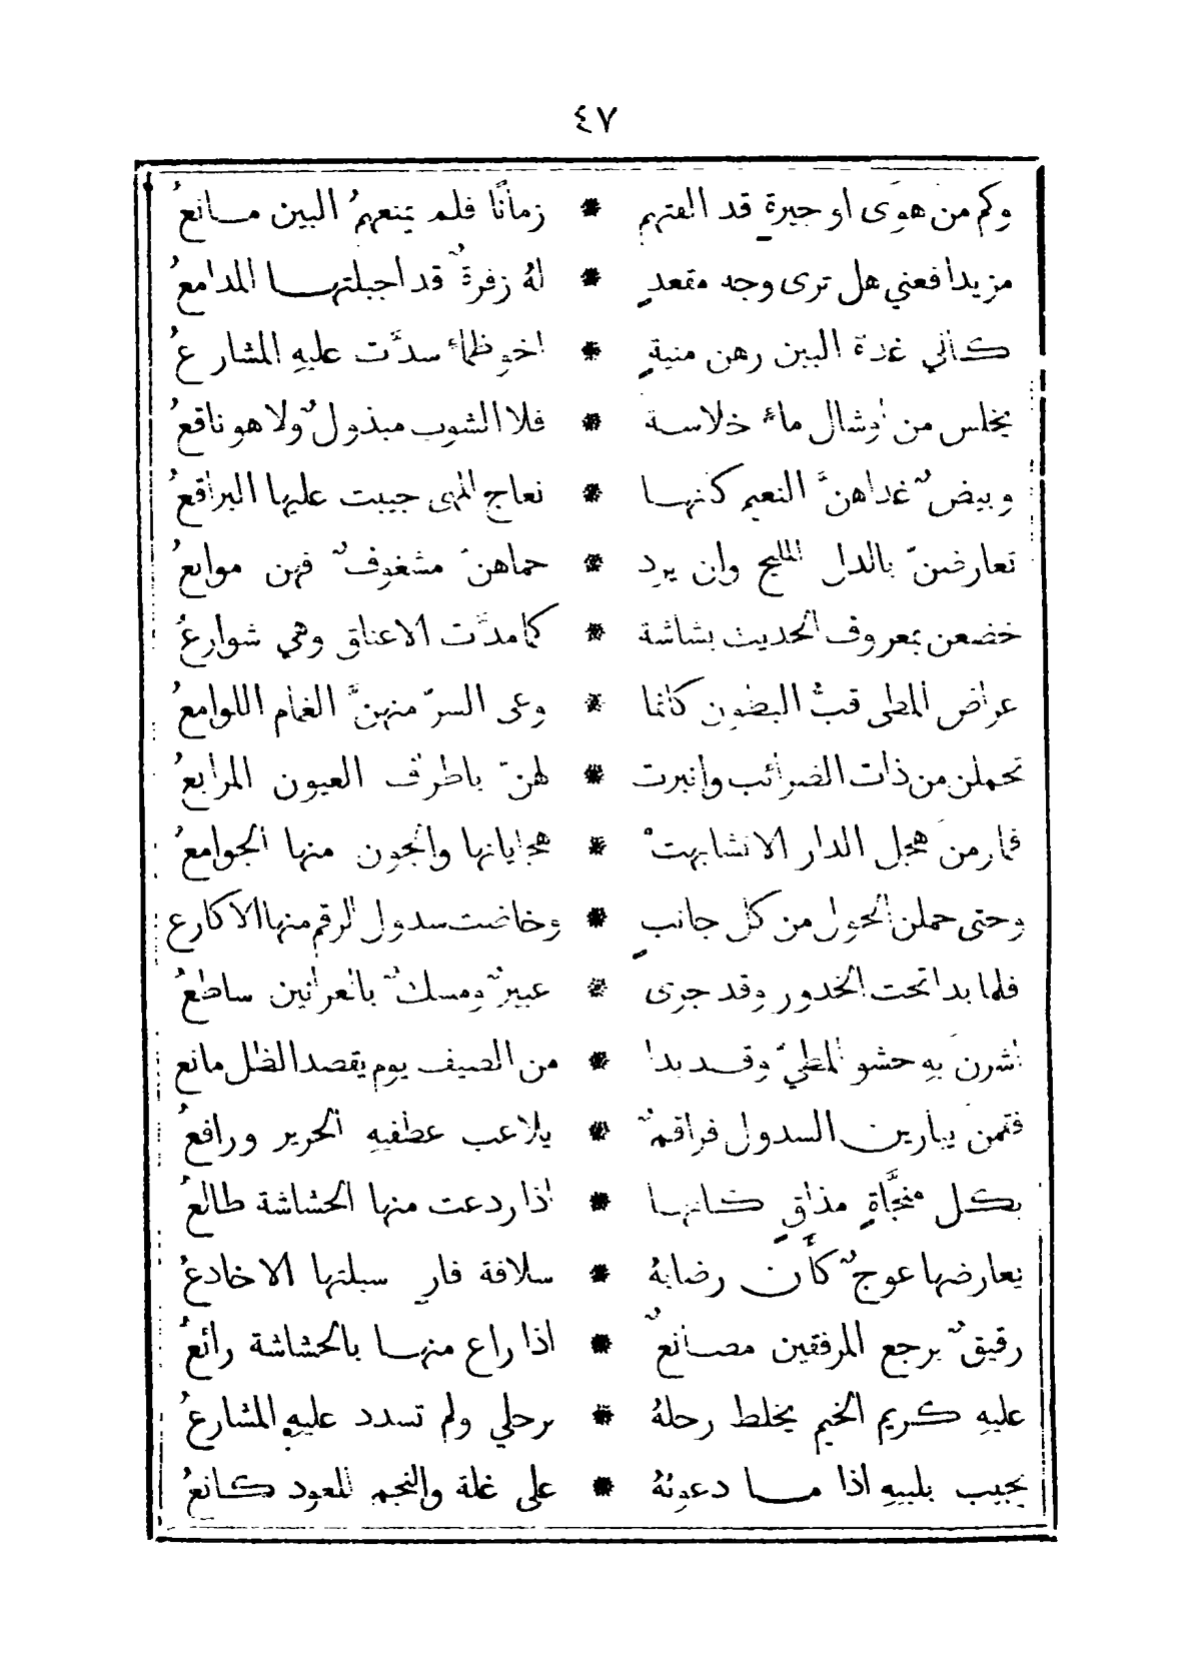 ٤٧
وكم من هوًى او جيرةٍ قد الفتهم * زمانًا فلم يمنعهمُ البين مانعُ
مزيدا فعني هل ترى وجه مقعدٍ * لهُ زفرةٌ قد اجبلتها المدامعُ
كأني غداة البين رهن منيةٍ * اخو ظماء سدَّت عليهِ المشارعُ
يخلس من اوشال ماء خلاسة * فلا الشوب مبذولٌ ولا هو ناقعُ
وبيضٌ غداهنَّ النعيم كأنها * نعاج المهى جيبت عليها البراقعُ
تعارضنَ بالدل المليح وان يرد * حماهنَ مشغوفٌ فهن موانعُ
خضعن بمعروف الحديث بشاشة * كما مدَّت الاعناق وهي شوارعُ
عراض المطى قبُّ البطون كانما * وعى السرّ منهنَّ الغمام اللوامعُ
تحملن من ذات الضرائب وانبرت * لهنّ باطراف العيون المرابعُ
فما رمنَ هجل الدار الا تشابهتْ * هجايانها والجون منها الجوامعُ
وحتى حملن الحول من كل جانبٍ * وخاضت سدول الرقم منها الاكارع
فلما بدا تحت الخدور وقد جرى * عبيرٌ ومسكٌ بالعرانين ساطعُ
اشرنَ بهِ حشو المطيّ وقد بدا * من الصيف يوم يقصد الظل مانع
فقمنَ يبارين السدول فراقمٌ * يلاعب عطفيهِ الحرير ورافعُ
بكل منجَّاةٍ مذاقٍ كانها * اذا ردعت منها الحشاشة طالعُ
يعارضها عوجٌ كأن رضابهُ * سلافة قارٍ سبلتها الاخادعُ
رقيقٌ برجع المرفقين مصانعٌ * اذا راع منها بالحشاشة رائعُ
عليهِ كريم الخيم يخلط رحلهُ * برحلي ولم تسدد عليهِ المشارعُ
يجيب بلبيهِ اذا ما دعوتهُ * على غلة والنجم للعود كانعُ